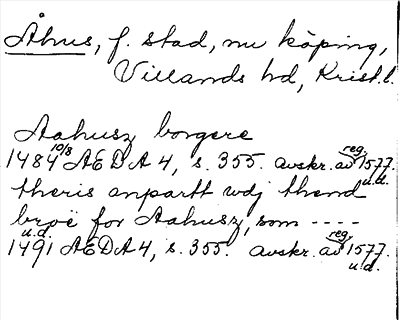 Åhus, f. stad, nu köping,
Villands hd, Krist.l.
Aahusz borgere
1484 10/8 AEDA 4, s. 355. avskr. av reg. 1577.
u.d.
theris anpartt wdj thend
broë for Aahusz, som ----
u.d.
1491 AEDA 4, s. 355. avskr. av reg. 1577.
u.d.